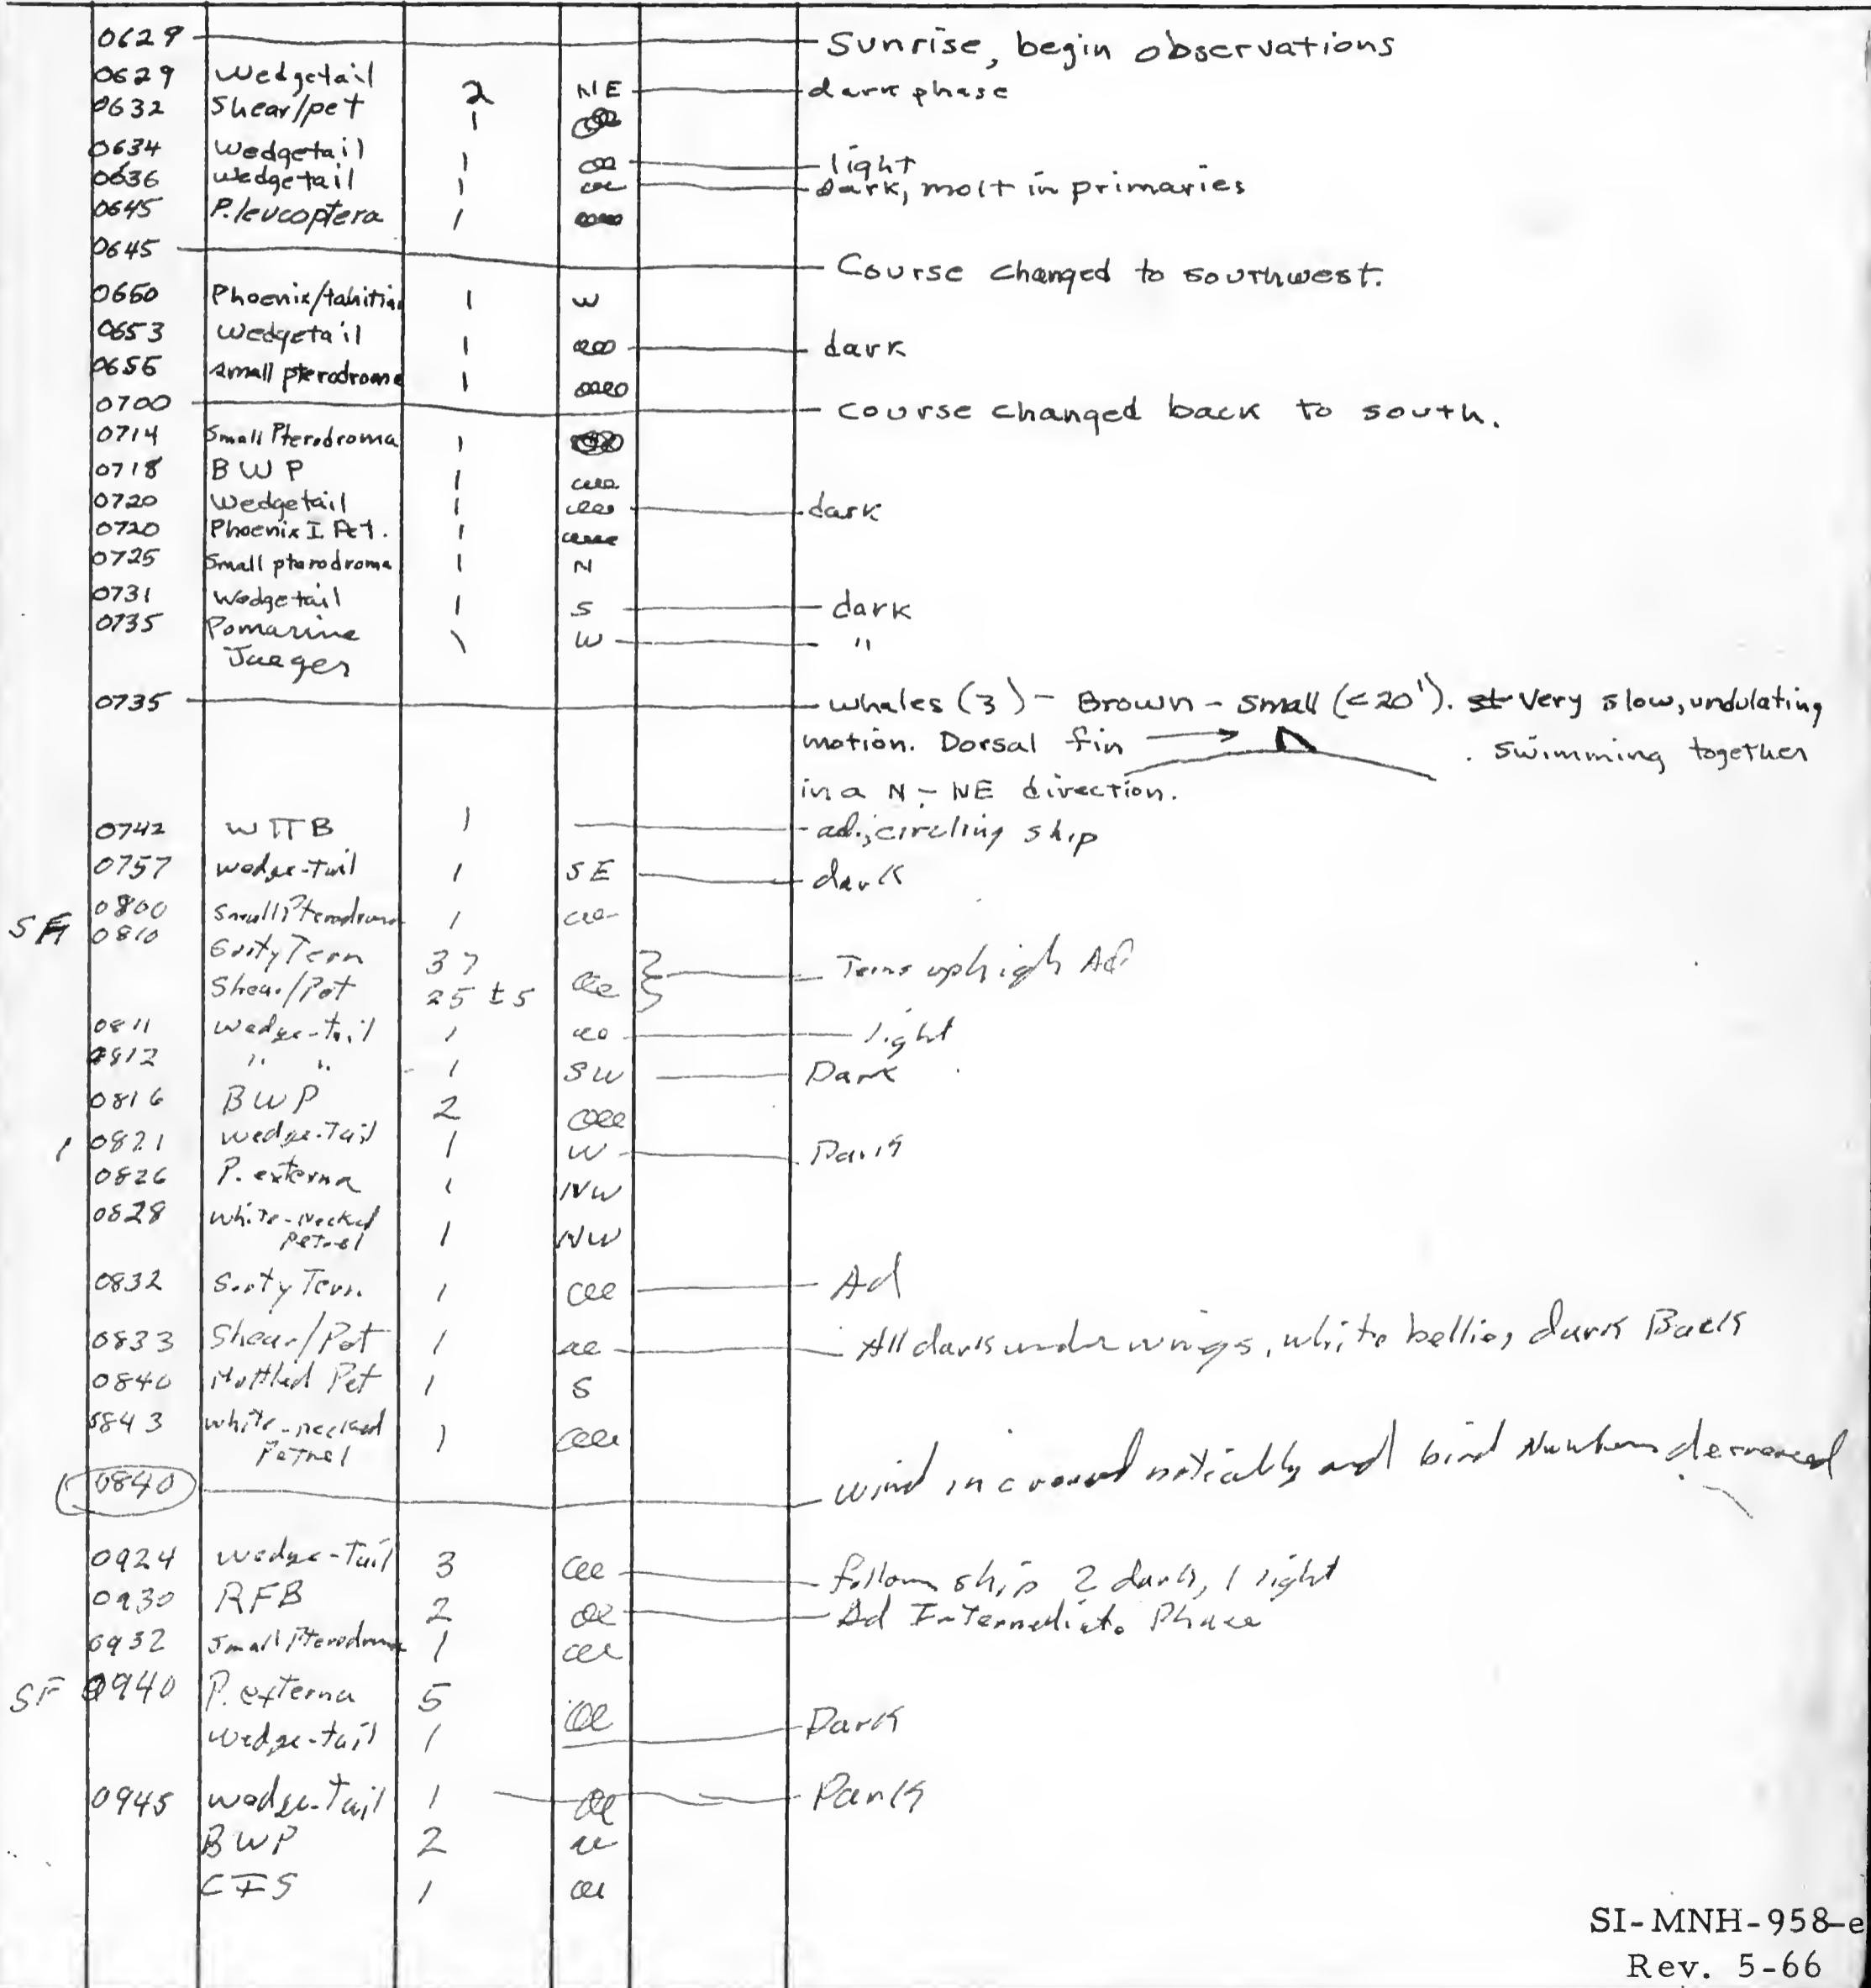 0629 Sunrise, begin observations
0629 Wedgetail 2 NE dark phase
0632 Shear/pet 1
0634 Wedgetail 1 light
0636 Wedgetail 1 dark, molt in primaries
0645 P. leucoptera 1
0645 Course changed to southwest.
0650 Phoenix/tahitian 1 W
0653 Wedgetail 1 dark
0656 small pterodroma 1
0700 course changed back to south.
0714 Small Pterodroma 1
0718 BWP 1
0720 Wedgetail 1 dark
0720 Phoenix I. Pet. 1
0725 Small pterodroma 1 N
0731 Wedgetail 1 S dark
0735 Pomarine 1 W "
Jaeger
0735 whales (3) - Brown - small (<20'). Very slow, undulating
motion. Dorsal fin → . swimming together
in a N-NE direction.
0742 WTTB 1 ad., circling ship
0757 wedge-tail 1 SE dark
0800 Small Pterodroma 1
0810 Sooty Tern 37 Terns up high Ad
Shear/Pet 25 ±5
0811 wedge-tail 1 light
0812 " " 1 SW Dark
0816 BWP 2
0821 wedge-tail 1 W Dark
0826 P. externa 1 NW
0828 white-necked
Petrel 1 NW
0832 Sooty Tern 1 Ad
0833 Shear/Pet 1 All dark under wings, white bellies, dark Back
0840 Mottled Pet 1 S
0843 white-necked
Petrel 1
0840 wind increased noticably and bird Numbers decreased
0924 wedge-tail 3 follow ship 2 dark, 1 light
0930 RFB 2 Ad Intermediate Phase
0932 small Pterodroma 1
SF 0940 P. externa 5
wedge-tail 1 Dark
0945 wedge-tail 1 Dark
BWP 2
CIS 1
SI-MNH-958-e
Rev. 5-66